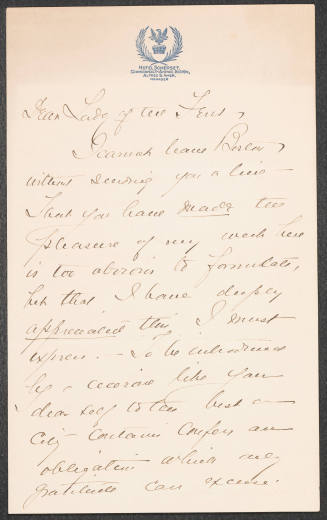 HOTEL SOMERSET
COMMONWEALTH AVENUE, BOSTON.
ALFRED S. AMER,
MANAGER
Dear Lady of the Fens,
I cannot leave Boston,
without sending you a line –
That you have made the
pleasure of my week here
is too obvious to formulate,
but that I have deeply
appreciated this, I must
express. – To be introduced
by a like you
dear to the best a
City contains confers an
obligation which my
gratitude can excuse.